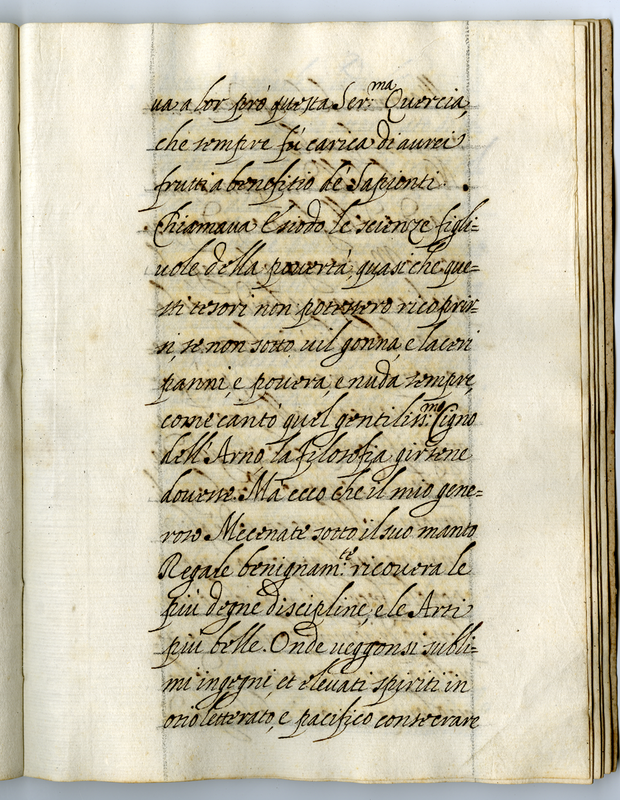 va a lor prò questa Ser:ma Quercia,
che sempre fù carica di aurei
frutti a benefitio de Sapienti.
Chiamava Esiodo le scienze figli=
uole della povertà, quasi che que=
sti tesori non potessero ricoprir=
si, se non sotto vil gonna, e laceri
panni, e povera, e nuda sempre,
come cantò quel gentiliss:mo Cigno
dell'Arno, la filosofia girsene
dovesse. Ma ecco che il mio gene=
roso Mecenate sotto il suo manto
Regale benignam:te ricovera le
più degne discipline, e le Arti
più belle. Onde veggonsi subli=
mi ingegni, et elevati spiriti in
otio letterato, e pacifico consecrare